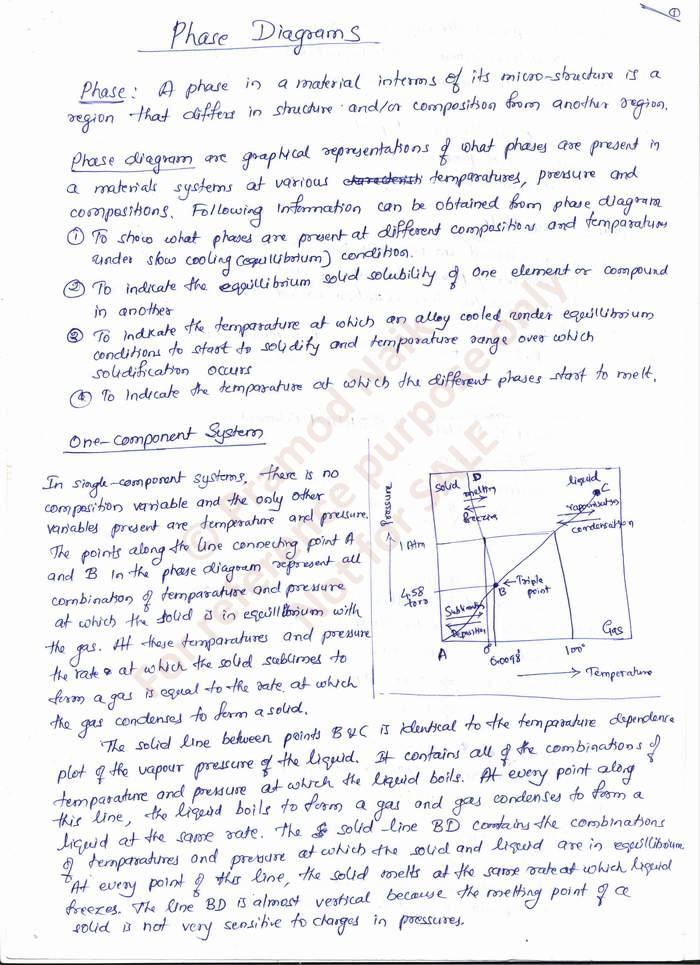 ①
Phase Diagrams
Phase: A phase in a material interms of its micro-structure is a
region that differs in structure and/or composition from another region.
Phase diagram are graphical representations of what phases are present in
a materials systems at various temparatures, pressure and
compositions. Following Information can be obtained from phase diagram
① To show what phases are present at different compositions and temparatures
under slow cooling (equillibrium) condition.
② To indicate the equillibrium solid solubility of one element or compound
in another
③ To indicate the temparature at which an alloy cooled under equillibrium
conditions to start to solidify and temparature range over which
solidification occurs
④ To Indicate the temparature at which the different phases start to melt.
One-component System
In single-component systems, there is no
composition variable and the only other
variables present are temperature and pressure.
The points along the line connecting point A
and B in the phase diagram represent all
combination of temparature and pressure
at which the solid is in equillibrium with
the gas. At these temparatures and pressure
the rate at which the solid sublimes to
form a gas is equal to the rate at which
the gas condenses to form a solid.
Pressure
solid
D
melting
freezing
liquid
C
vapourisation
condensation
1 Atm
4.58
torr
Triple
point
B
Sublimation
Deposition
Gas
A
0°
0.0098°
100°
Temperature
The solid line between points B & C is identical to the temparature dependence
plot of the vapour pressure of the liquid. It contains all of the combinations of
temparature and pressure at which the liquid boils. At every point along
this line, the liquid boils to form a gas and gas condenses to form a
liquid at the same rate. The solid line BD contains the combinations
of temparatures and pressure at which the solid and liquid are in equillibrium
At every point of this line, the solid melts at the same rate at which liquid
freezes. The line BD is almost vertical because the melting point of a
solid is not very sensitive to changes in pressures.
© Pramod Naik
For reference purpose only
Not for SALE